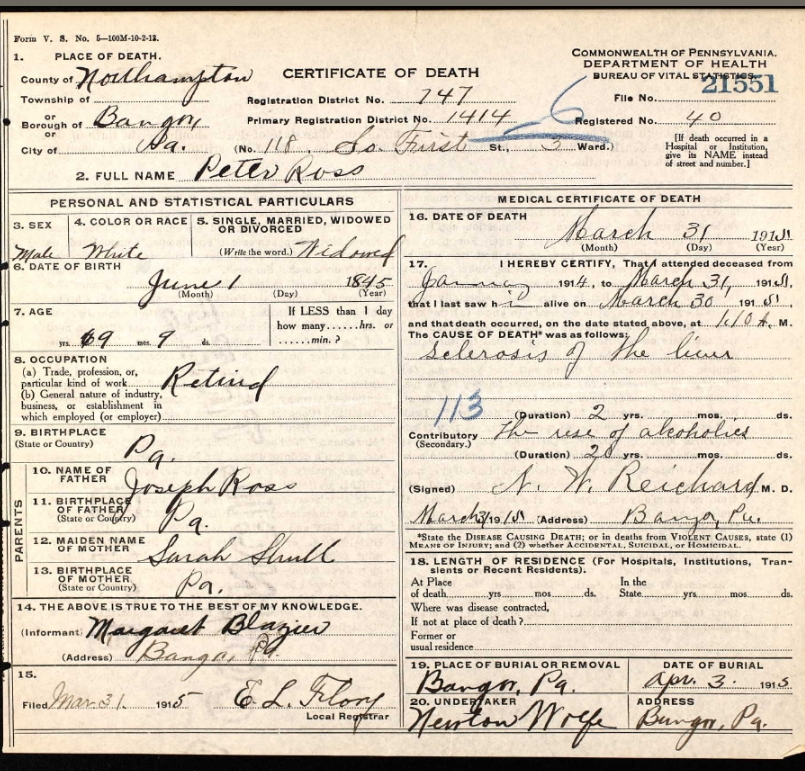 Form V. S. No. 5—100M-10-2-12.
COMMONWEALTH OF PENNSYLVANIA.
DEPARTMENT OF HEALTH
BUREAU OF VITAL STATISTICS.
CERTIFICATE OF DEATH
1. PLACE OF DEATH.
County of Northampton
Township of
or
Borough of Bangor,
or
City of Pa.
Registration District No. 747
Primary Registration District No. 1414
(No. 118. So. First St., 3 Ward.)
6
File No. 21551
Registered No. 40
[If death occurred in a Hospital or Institution, give its NAME instead of street and number.]
2. FULL NAME Peter Ross
PERSONAL AND STATISTICAL PARTICULARS
3. SEX
Male
4. COLOR OR RACE
White
5. SINGLE, MARRIED, WIDOWED OR DIVORCED
(Write the word.) Widowed
6. DATE OF BIRTH
June 1 1845
(Month) (Day) (Year)
7. AGE
yrs. 69 mos. 9 ds.
If LESS than 1 day
how many......hrs. or
......min.?
8. OCCUPATION
(a) Trade, profession, or,
particular kind of work Retired
(b) General nature of industry,
business, or establishment in
which employed (or employer)
9. BIRTHPLACE
(State or Country) Pa.
PARENTS
10. NAME OF
FATHER Joseph Ross
11. BIRTHPLACE
OF FATHER
(State or Country) Pa.
12. MAIDEN NAME
OF MOTHER Sarah Shull
13. BIRTHPLACE
OF MOTHER
(State or Country) Pa.
14. THE ABOVE IS TRUE TO THE BEST OF MY KNOWLEDGE.
(Informant) Margaret Blazier
(Address) Bangor, Pa.
15.
Filed Mar. 31 1915 E. L. Flory
Local Registrar
MEDICAL CERTIFICATE OF DEATH
16. DATE OF DEATH
March 31 1915
(Month) (Day) (Year)
17. I HEREBY CERTIFY, That I attended deceased from
January 1914, to March 31, 1915,
that I last saw h i alive on March 30 1915,
and that death occurred, on the date stated above, at 1.10 A. M.
The CAUSE OF DEATH* was as follows:
Sclerosis of the liver
113
(Duration) 2 yrs. mos. ds.
Contributory The use of alcoholics
(Secondary.)
(Duration) 20 yrs. mos. ds.
(Signed) N. W. Reichard M. D.
March 31 1915 (Address) Bangor, Pa.
*State the DISEASE CAUSING DEATH; or in deaths from VIOLENT CAUSES, state (1)
MEANS OF INJURY; and (2) whether ACCIDENTAL, SUICIDAL, or HOMICIDAL.
18. LENGTH OF RESIDENCE (For Hospitals, Institutions, Transients or Recent Residents).
At Place
of death yrs mos. ds.
In the
State yrs. mos ds.
Where was disease contracted,
If not at place of death?
Former or
usual residence
19. PLACE OF BURIAL OR REMOVAL
Bangor, Pa.
DATE OF BURIAL
Apr. 3. 1915
20. UNDERTAKER
Newton Wolfe
ADDRESS
Bangor, Pa.